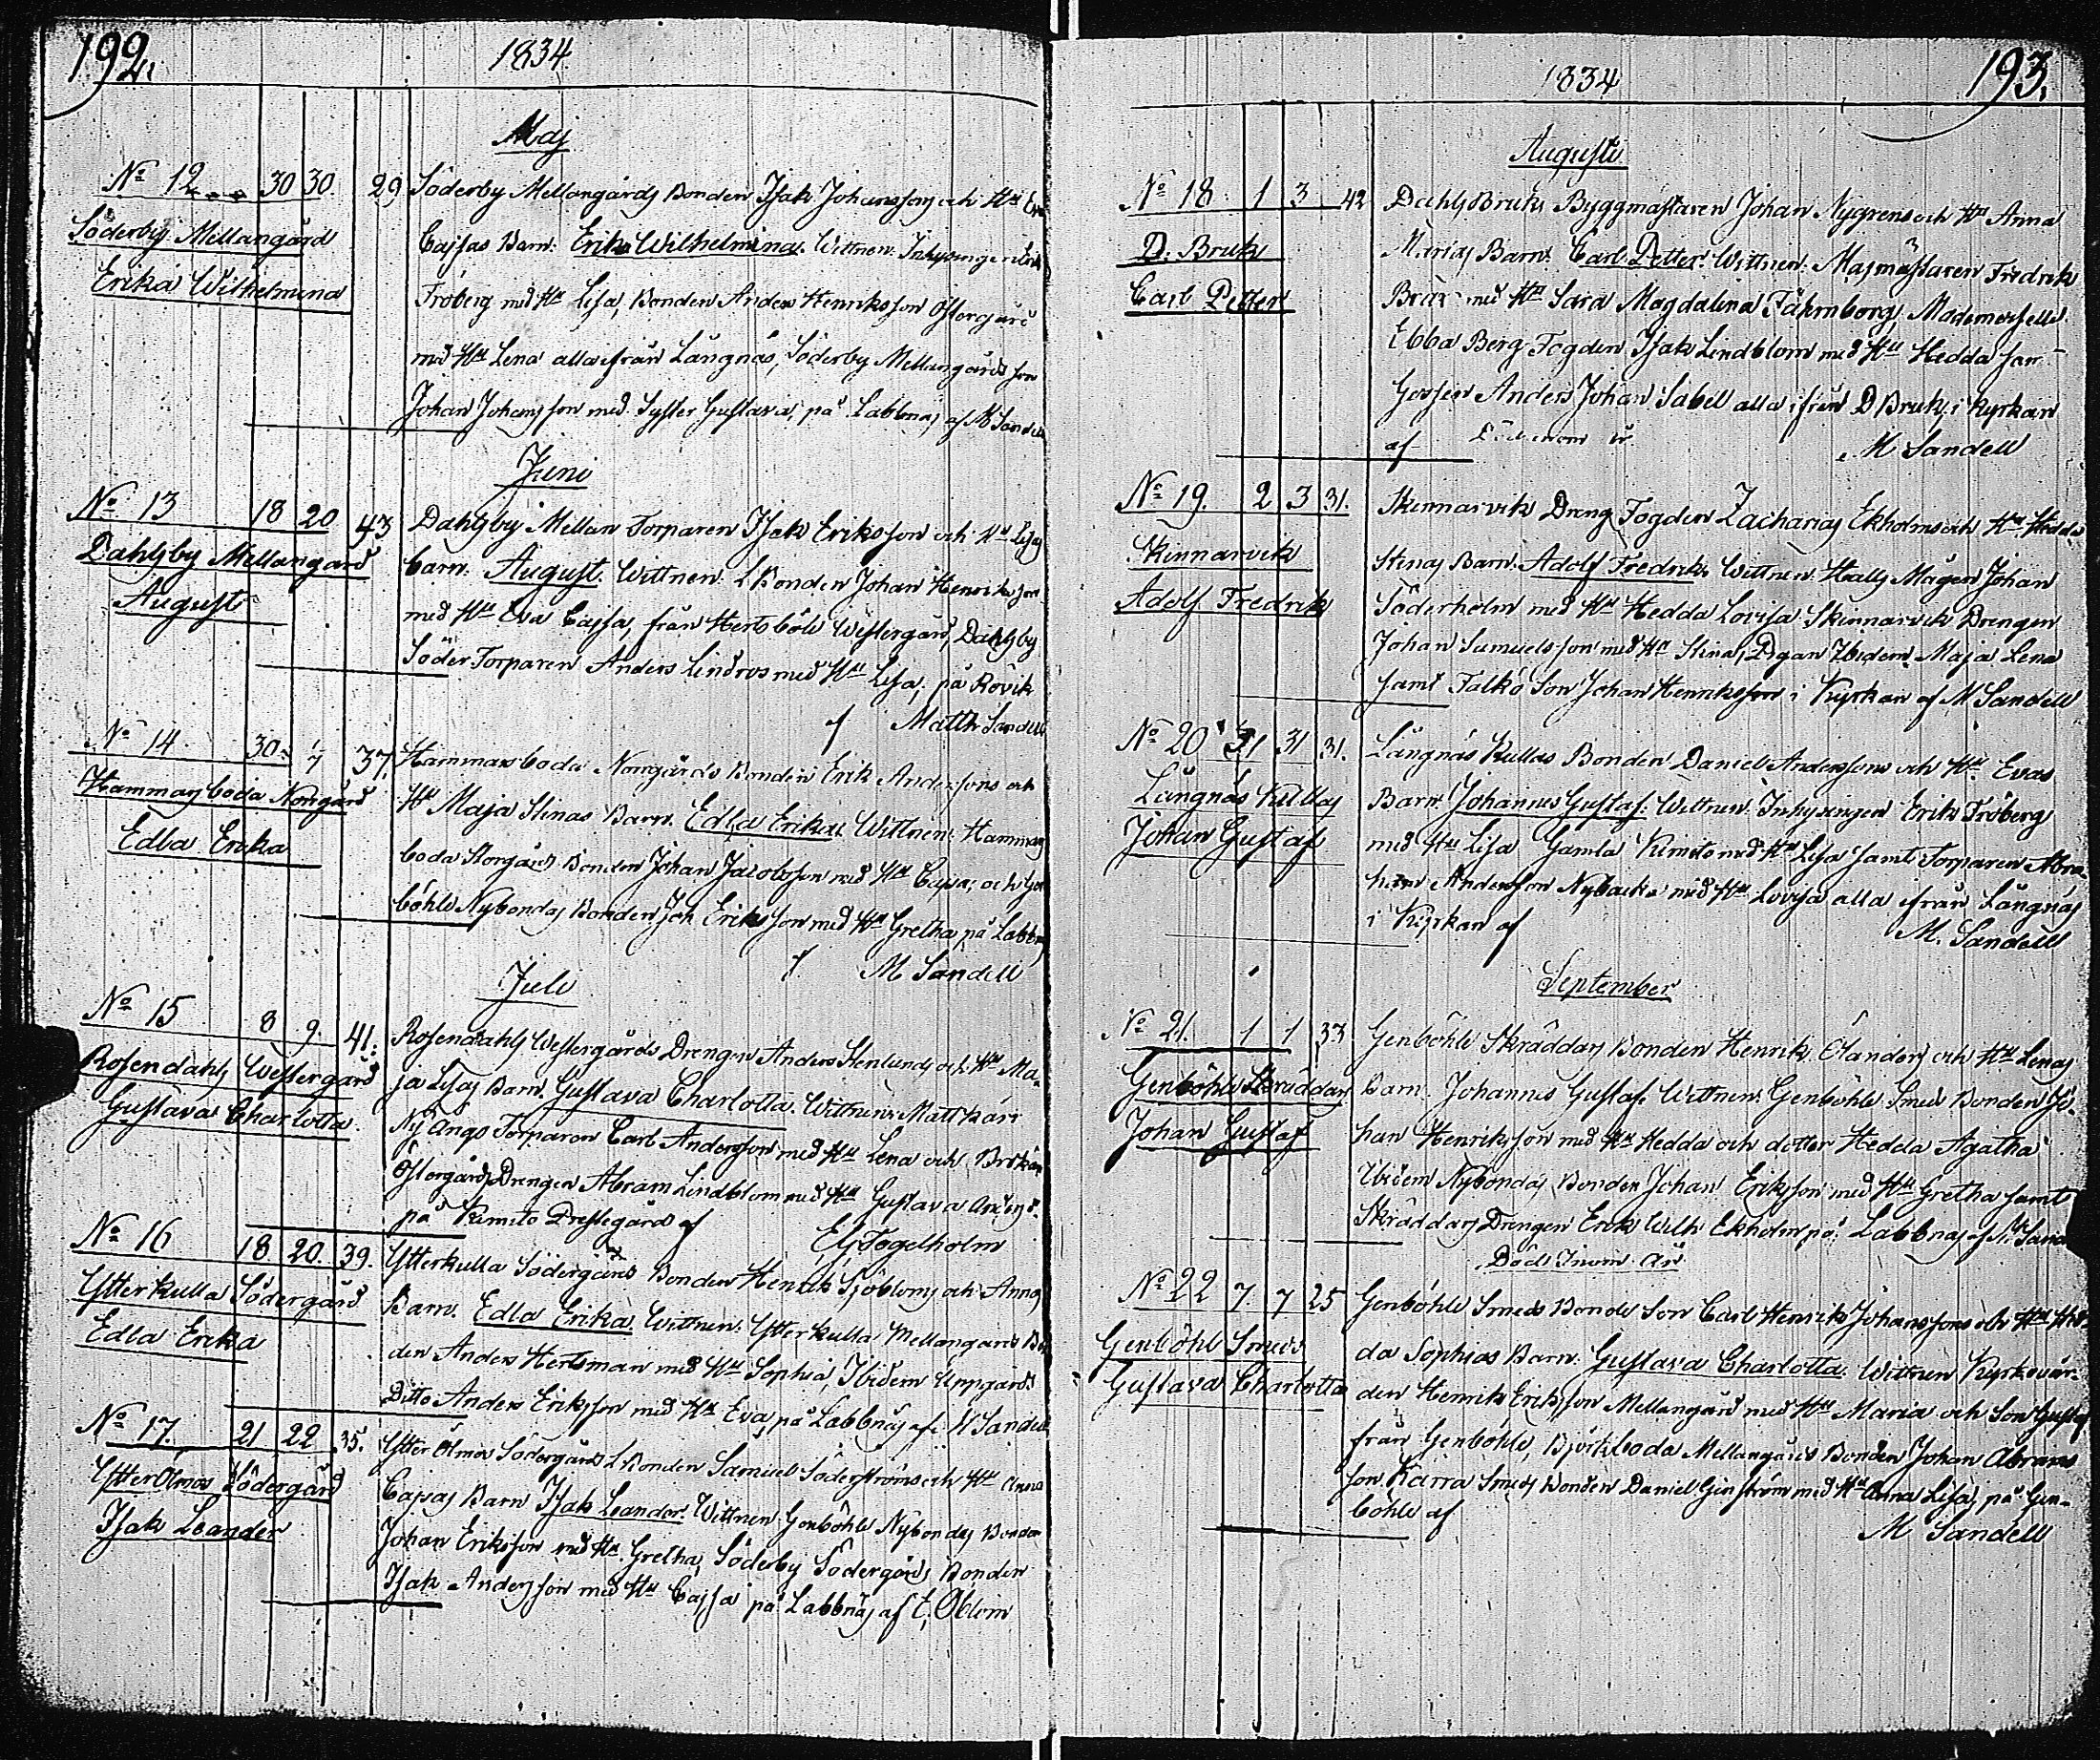 192.
1834
Maj
No 12 30 30. 29 Söderby Mellangårds Bonden Isak Johanssons och Hu Eva
Söderby Mellangård
Cajsas Barn. Erika Wilhelmina. Wittnen. Inhysingen Erik
Erika Wilhelmina
Fröberg med Hu Lisa, Bonden Anders Henriksson Östergård
med Hu Lena alla ifrån Långnäs, Söderby Mellangårds son
Johan Johansson med Syster Gustava, på Labbnäs af M Sandell
Juni
No 13 18 20 43 Dahlsby Mellan Torparen Isak Eriksson och Hu Lisas
Dahlsby Mellangård
barn. August. Wittnen. L Bonden Johan Henriksson
August
med Hu Eva Cajsa, från Hertsböle Westergård, Dahlsby
Söder Torparen Anders Lindros med Hu Lisa, på Rövik
af Matth Sandell
No 14 30. 1/7 37. Hammarsboda Norrgårds Bonden Erik Anderssons och
Hammarsboda Norrgård
Hu Maja Stinas Barn. Edla Erika. Wittnen. Hammars
Edla Erika
boda Storgårds Bonden Johan Jacobsson med Hu Cajsa, och Gen
böhle Nybondas Bonden Joh Eriksson med Hu Gretha på Labbnäs
af M Sandell
Juli
No 15 8 9. 41. Rosendahls Westergårds Drengen Anders Stenlunds och Hu Ma-
Rosendahls Westergård
ja Lisas Barn. Gustava Charlotta. Wittnen. Mattkärr
Gustava Charlotta.
Ny Ängs Torparen Carl Andersson med Hu Lena och
Östergårds Drengen Abram Lindblom med Hu Gustava
på Kimito Prestegård af Elj Fogelholm
No 16 18 20. 39. Ytterkulla Södergårds Bonden Henrik Sjöbloms och Annas
Ytterkulla Södergård
Barn. Edla Erika. Wittnen. Ytterkulla Mellangårds Bon
Edla Erika
den Anders Hertsman med Hu Sophia, Ibidem Uppgårds
Ditto Anders Eriksson med Hu Eva, på Labbnäs af M Sandell
No 17. 21 22 35. Ytter Ölmos Södergårds L Bonden Samuel Söderströms och Hu Anna
Ytter Ölmos Södergård
Cajsas Barn Isak Leander. Wittnen Genböhle Nybondas Bonden
Isak Leander
Johan Eriksson med Hu. Gretha, Söderby Södergårds Bonden
Isak Andersson med Hu Cajsa på Labbnäs af E, Öblom
193.
1834
Augusti
No 18 1 3 42 Dahls Bruks Byggmästaren Johan Nygrens och Hu Anna
D. Bruk
Marias Barn. Carl Petter. Wittnen. Masmästaren Fredrik
Carl Petter
med Hu Sara Magdalena Fährnborg, Mademoiselle
Ebba Berg Fogden Isak Lindblom med Hu Hedda sam-
Gossen Anders Johan Sabell alla ifrån D Bruk, i Kyrkan
af M Sandell
No 19. 2 3 31. Skinnarvik Dreng Fogden Zacharias Ekholms och Hu Hedda
Skinnarvik
Stinas Barn. Adolf Fredrik. Wittnen. Halls Mågen Johan
Adolf Fredrik
Söderholm med Hu Hedda Lovisa Skinnarvik Drengen
Johan Samuelsson med Hu Stina, Pgan Ibidem Maja Lena
samt Falkö Son Johan Henriksson i Kyrkan af M Sandell
No 20 31 31 31. Långnäs Kullas Bonden Daniel Anderssons och Hu Evas
Långnäs Kullas
Barn. Johannes Gustaf. Wittnen. Inhysingen Erik Fröberg
Johan Gustaf
med Hu Lisa Gamla Kimito med Hu Lisa samt Torparen Abra-
ham Andersson Nybacka med Hu Lovisa alla ifrån Långnäs
i Kyrkan af M. Sandell
September
No 21. 1 1 33 Genböhle Skräddars Bonden Henrik Ölanders och Hu Lenas
Genböhle Skräddars
barn. Johannes Gustaf. Wittnen. Genböhle Smeds Bonden Jo-
Johan Gustaf
han Henriksson med Hu Hedda och dotter Hedda Agatha
Ibidem Nybondas Bonden Johan Eriksson med Hu Gretha samt
Skräddars Drengen Erik Wilh Ekholm på Labbnäs af M Sand
Död Inom år
No 22 7. 7 25 Genböhle Smeds Bonde Son Carl Henrik Johanssons och Hu Hed-
Genböhl Smeds
da Sophias Barn. Gustava Charlotta. Wittnen Kyrkovär-
Gustava Charlotta
den Henrik Eriksson Mellangård med Hu Maria och Son Gustaf
från Genböhle, Björkboda Mellangårds Bonden Johan Abrams
son, Kärra Smeds Bonden Daniel Genström med Hu Anna Lisa, på Gen-
böhle af M Sandell